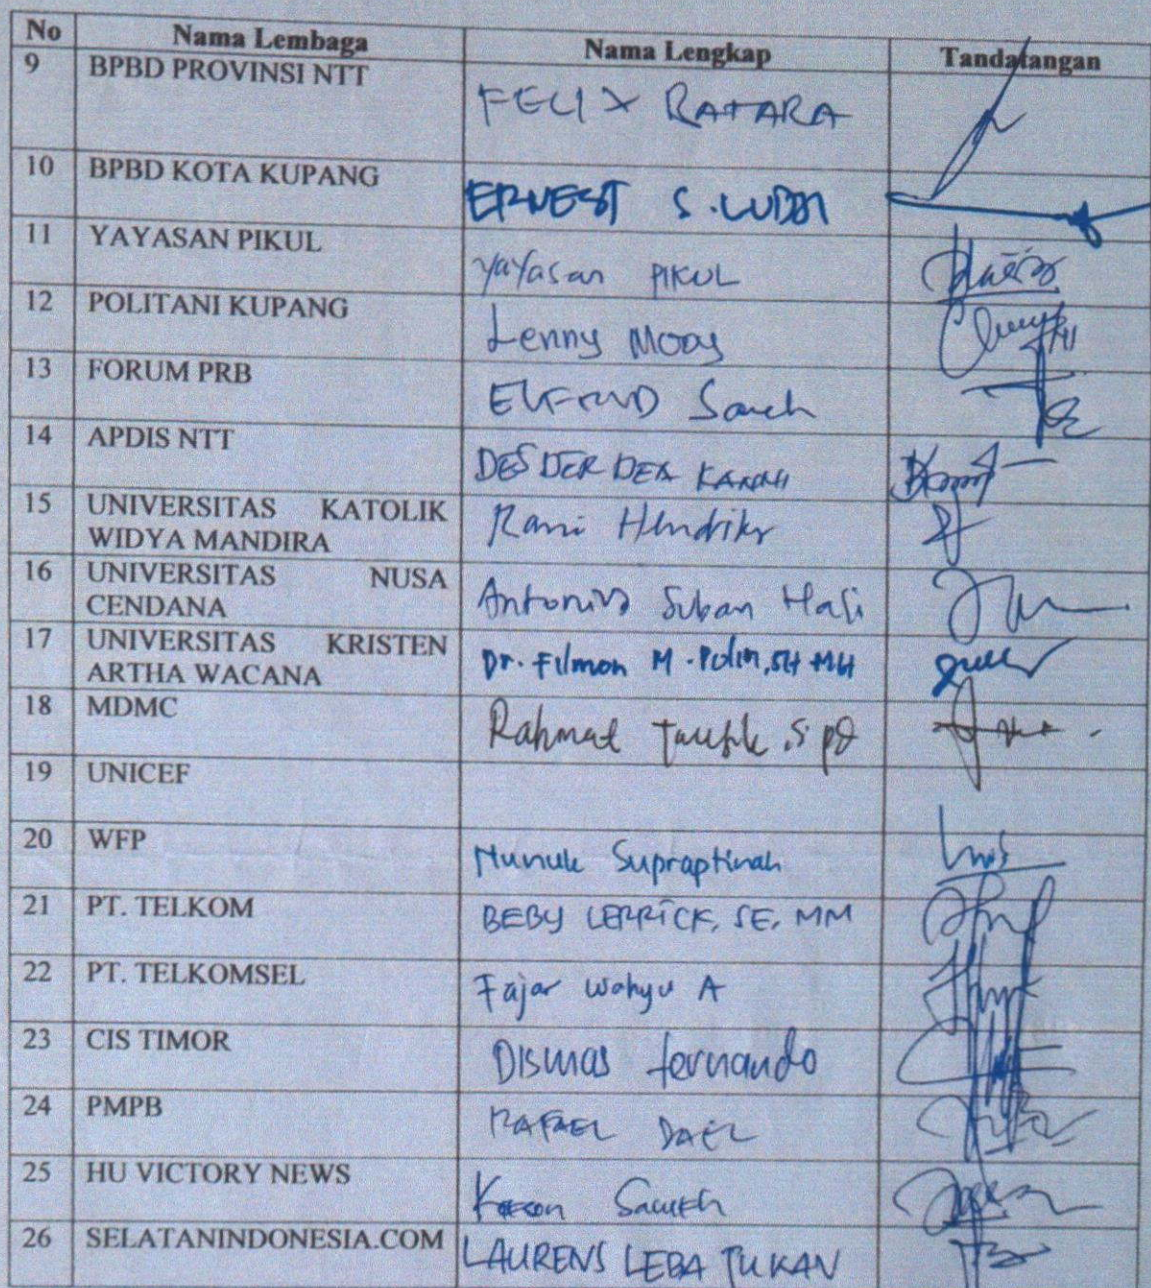 No Nama Lembaga Nama Lengkap Tandatangan
9 BPBD PROVINSI NTT FELIX RATARA
10 BPBD KOTA KUPANG ERNEST S. LUDJI
11 YAYASAN PIKUL Yayasan PIKUL
12 POLITANI KUPANG Lenny Mooy
13 FORUM PRB ELFRID Saneh
14 APDIS NTT DESDERDEA KANNI
15 UNIVERSITAS KATOLIK Rani Hendriks
WIDYA MANDIRA
16 UNIVERSITAS NUSA Antonius Suban Hali
CENDANA
17 UNIVERSITAS KRISTEN Dr. Filmon M. Polin, SH MH
ARTHA WACANA
18 MDMC Rahmat Taufik, S.Pd
19 UNICEF
20 WFP Nunuk Supraptinah
21 PT. TELKOM BEBY LERRICK, SE, MM
22 PT. TELKOMSEL Fajar Wahyu A
23 CIS TIMOR Dismas fernando
24 PMPB RAFAEL DAEL
25 HU VICTORY NEWS
26 SELATANINDONESIA.COM LAURENS LEBA TUKAN